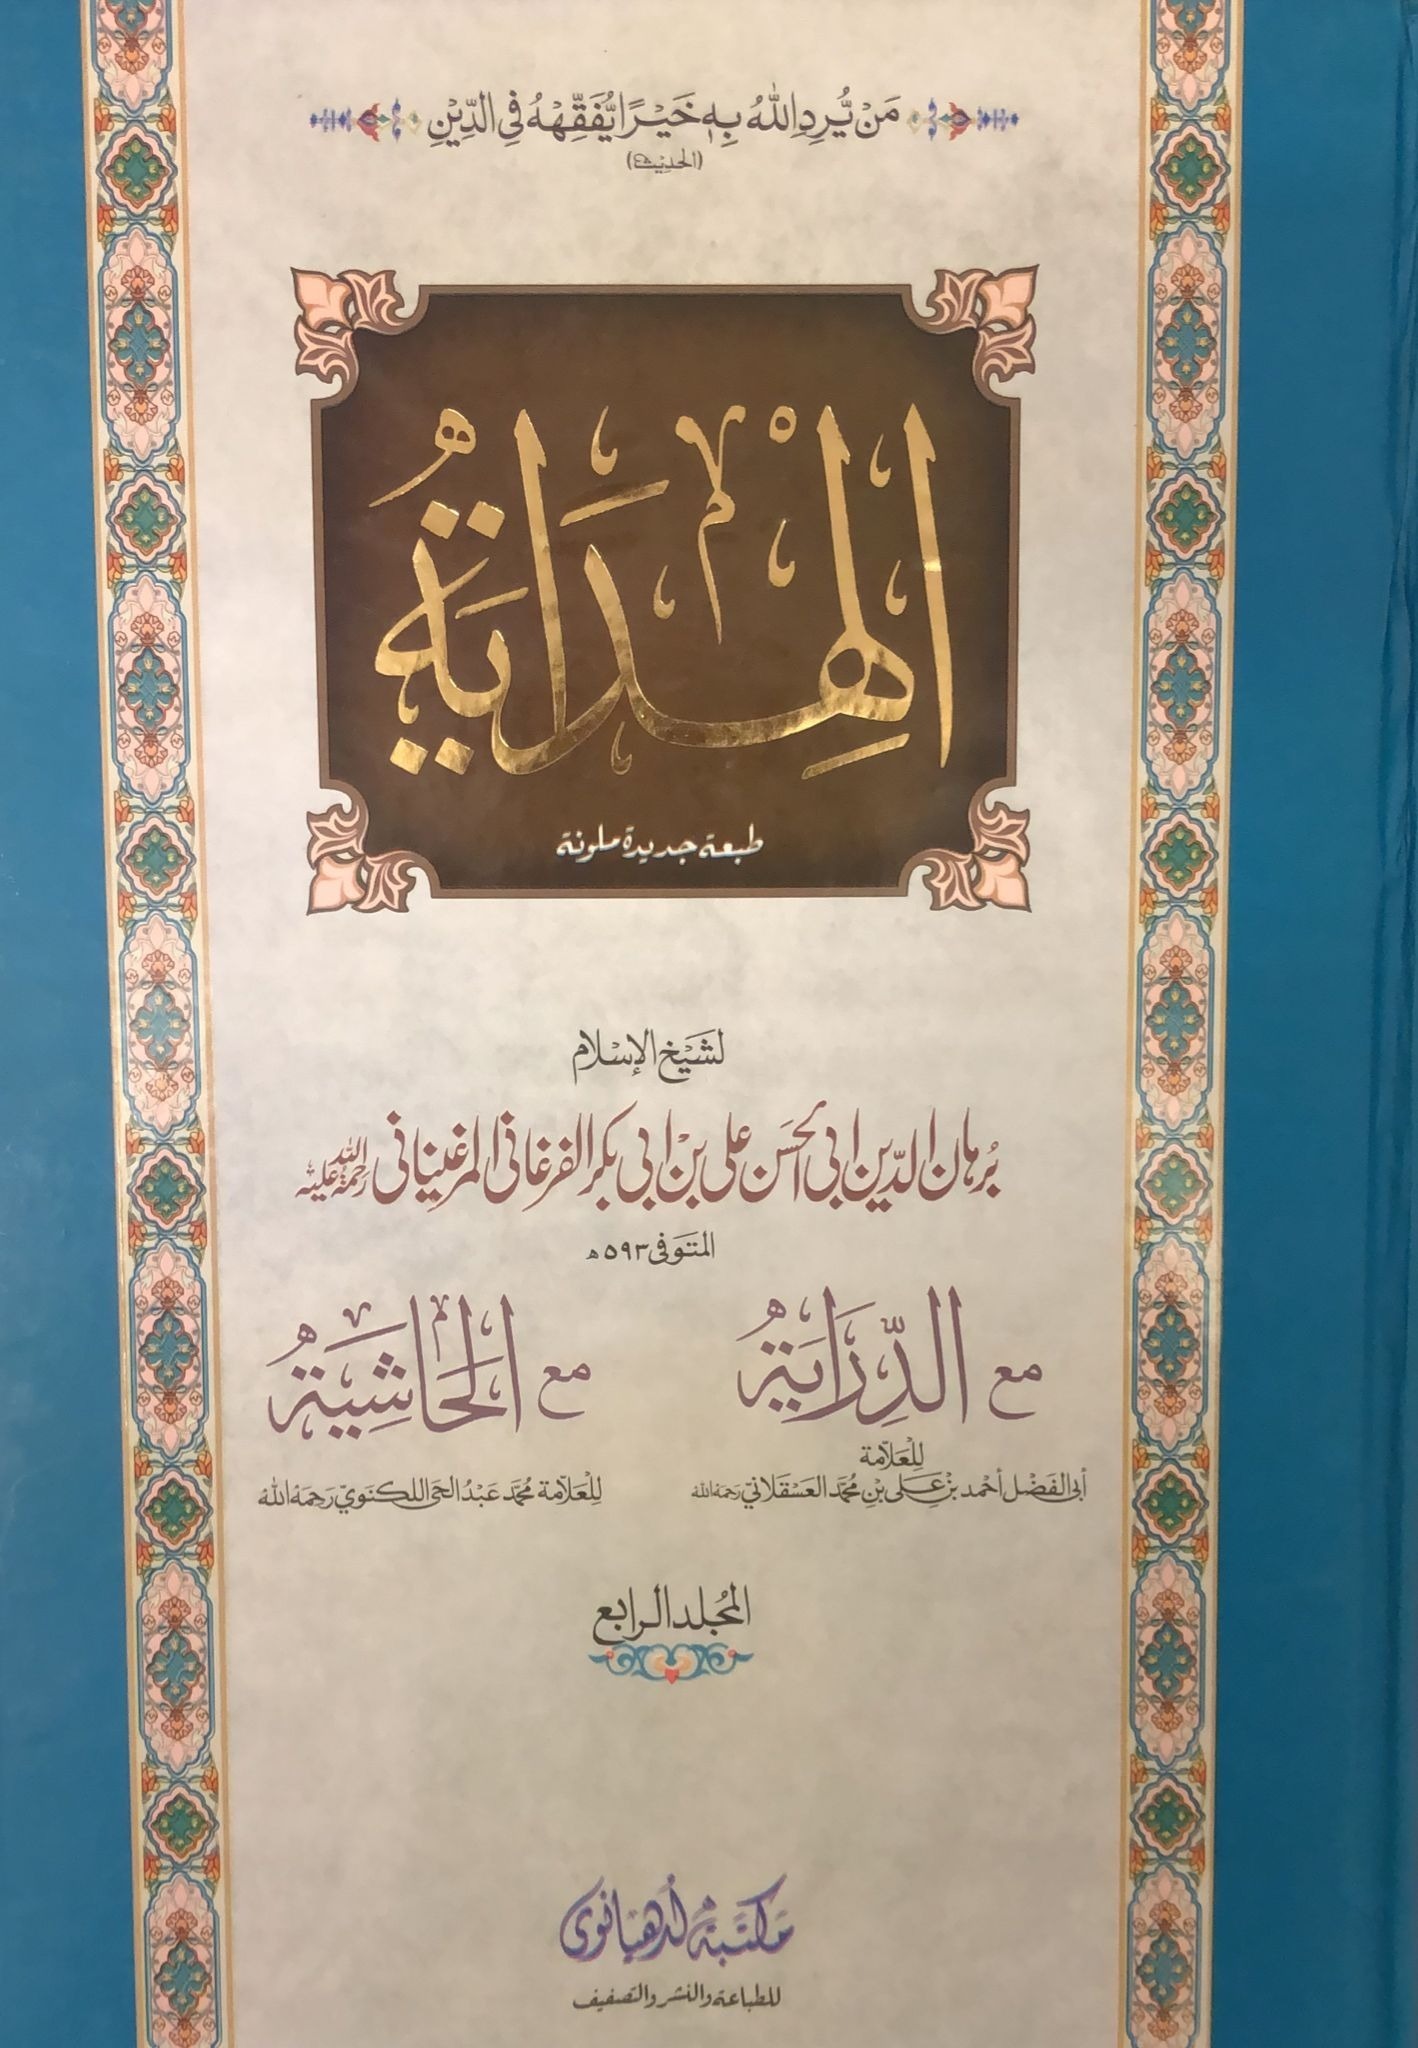 مَنْ يُّرِدِ اللّٰهُ بِهٖ خَيْرًا يُّفَقِّهْهُ فِي الدِّيْنِ
(الحديث)
الهِدَايَةُ
طبعة جديدة ملونة
لشَيْخ الإسْلَام
بُرهان الدّين ابی الحَسَن علی بن ابی بکر الفرغانی المرغینانی رَحمَةُ اللّٰه عَلَيْه
المتَوَفى ٥٩٣ھ
مع الدِّرَايَةُ
لِلْعَلّامَة
أبي الفَضْل أحْمد بْن عَلى بْنِ مُحَمَّد العَسْقَلانيّ رَحمَهُ الله
مع الحَاشِيَةُ
لِلْعَلّامَة مُحَمَّد عَبْدُ الحَي اللكنَويّ رَحمَهُ اللهُ
المُجلد الرابع
مَكتَبَةُ لُدهيَانوى
للطباعة والنشر والتصفيف